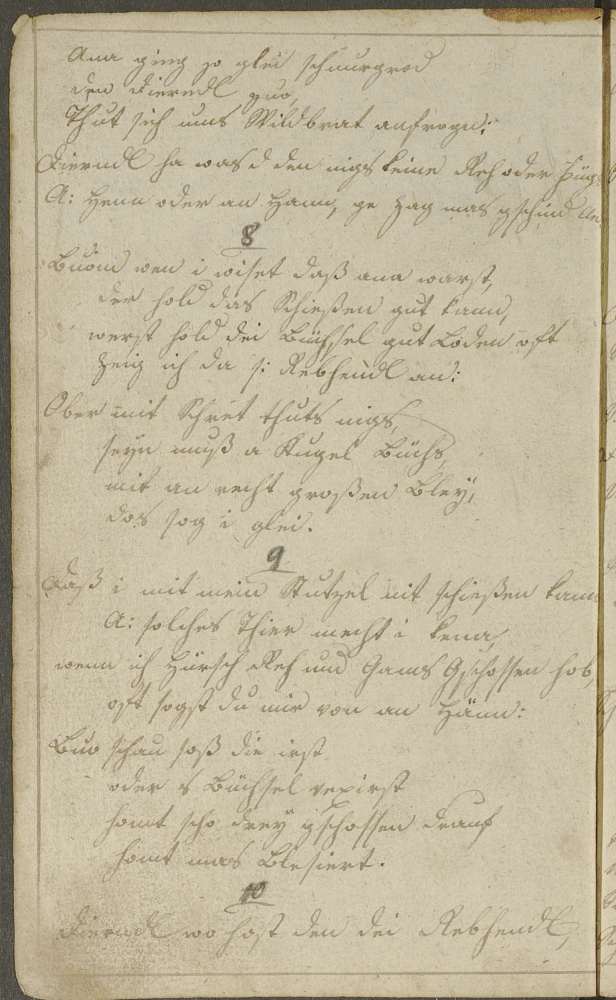 Ana ging so glei schnurgrod
den Dierndl zuo,
Thut sich ums Wildbrat anfrogn:
Dierndl ha was d den nigs keine Reh oder
A: Henn oder an Hann, ge zag mas gschind
8
Buom wen i wiset daß ana warst,
der hold das Schießen gut kann,
werst hold dei Büchsel gut Loden oft
Zeig ich da s: Rebhendl an:
Ober mit Schret thuts nigs,
seyn muß a Kugel Büchs,
mit an recht großen Bley,
das sog i glei.
9
Daß i mit mein Stutzel nit schießen kann
A: solches Thier mecht i kena,
wenn ich Hürsch Reh und Gams Gschossen hob,
oft sogst du mir von an Hänn:
Buo schau daß die irst
oder s Büchsel verirst
homt scho drey gschossen drauf
homt mas Blesiert.
10
Dierndl wo host den dei Rebhendl,